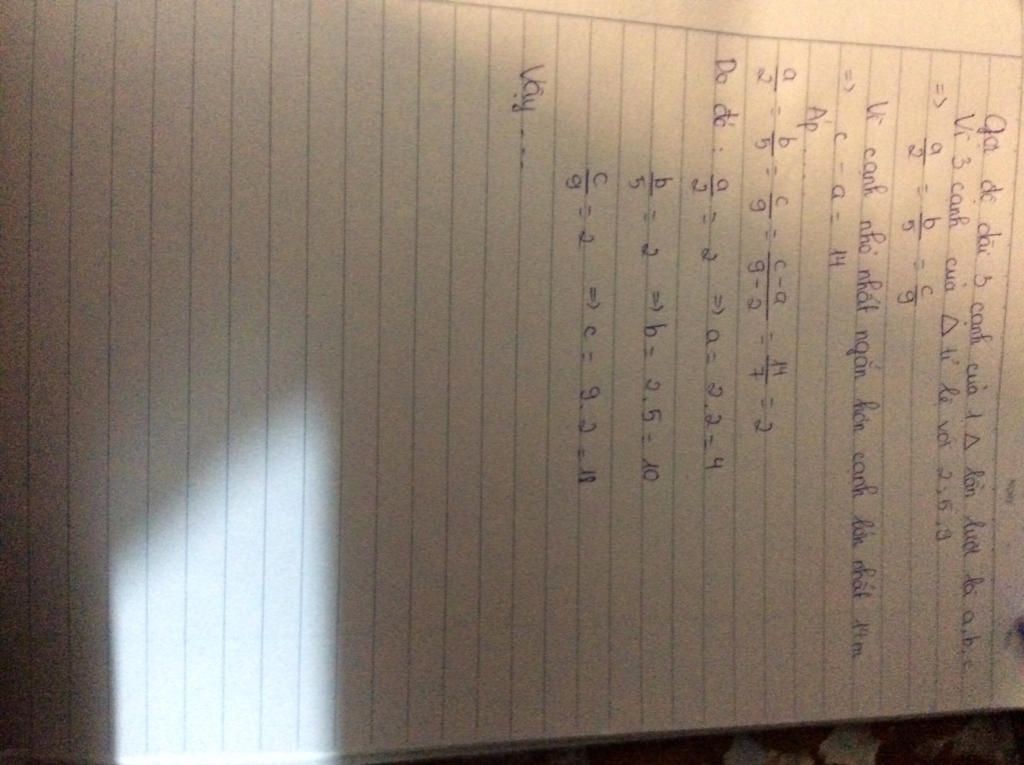 Gọi độ dài 3 cạnh của 1 Δ lần lượt là a, b, c
Vì 3 cạnh của Δ tỉ lệ với 2, 5, 9
=> a/2 = b/5 = c/9
Vì cạnh nhỏ nhất ngắn hơn cạnh lớn nhất 14m
=> c - a = 14
Áp ......
a/2 = b/5 = c/9 = c-a/9-2 = 14/7 = 2
Do đó: a/2 = 2 => a = 2.2 = 4
b/5 = 2 => b = 2.5 = 10
c/9 = 2 => c = 9.2 = 18
Vậy ....